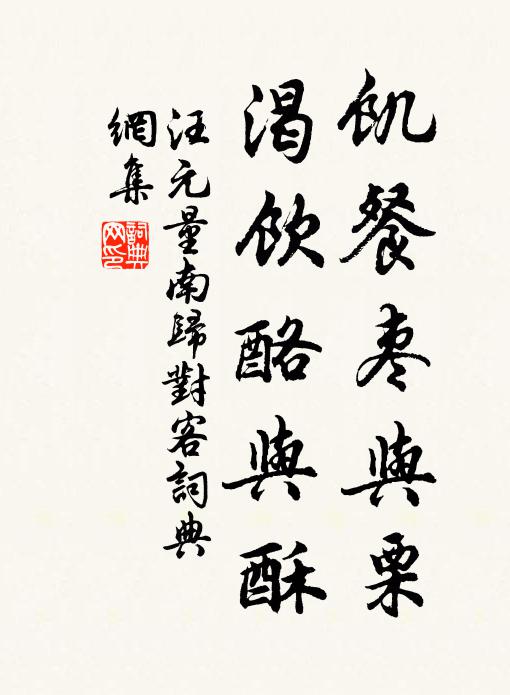 飢餐枣與栗
渴飲酪與酥
汪元量南歸對客詞典
網集
詞典
网印